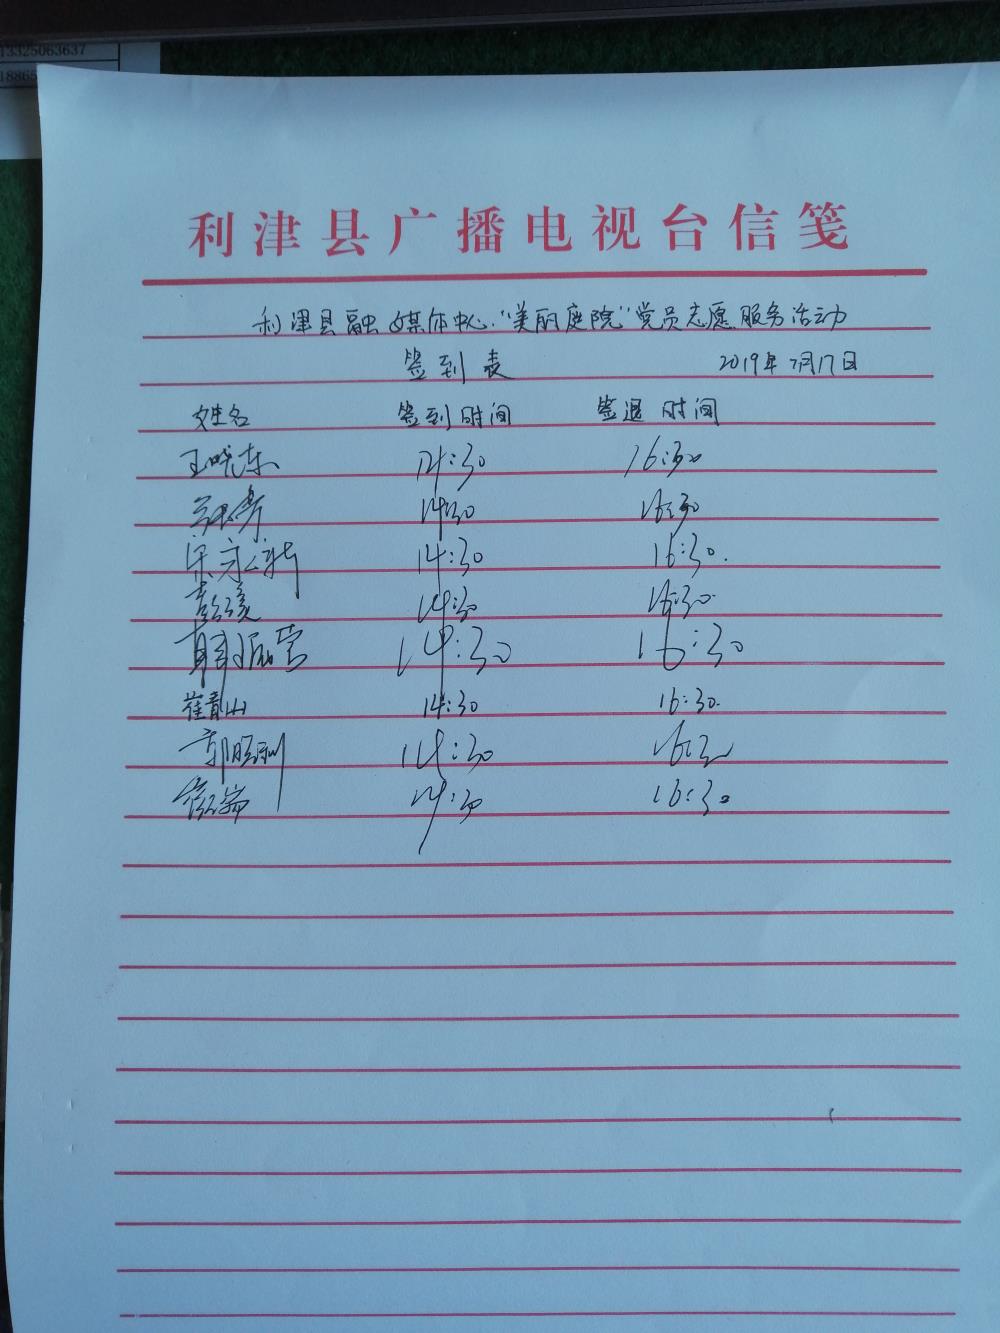 13325063637
利津县广播电视台信笺
利津县融媒体中心"美丽庭院"党员志愿服务活动
签到表 2019年7月17日
姓名 签到时间 签退时间
王晓东 14:30 16:30
14:30 16:30
宋永新 14:30 16:30.
14:30 16:30.
14:30 16:30
崔青山 14:30 16:30.
郭明刚 14:30 16:30
14:30 16:30